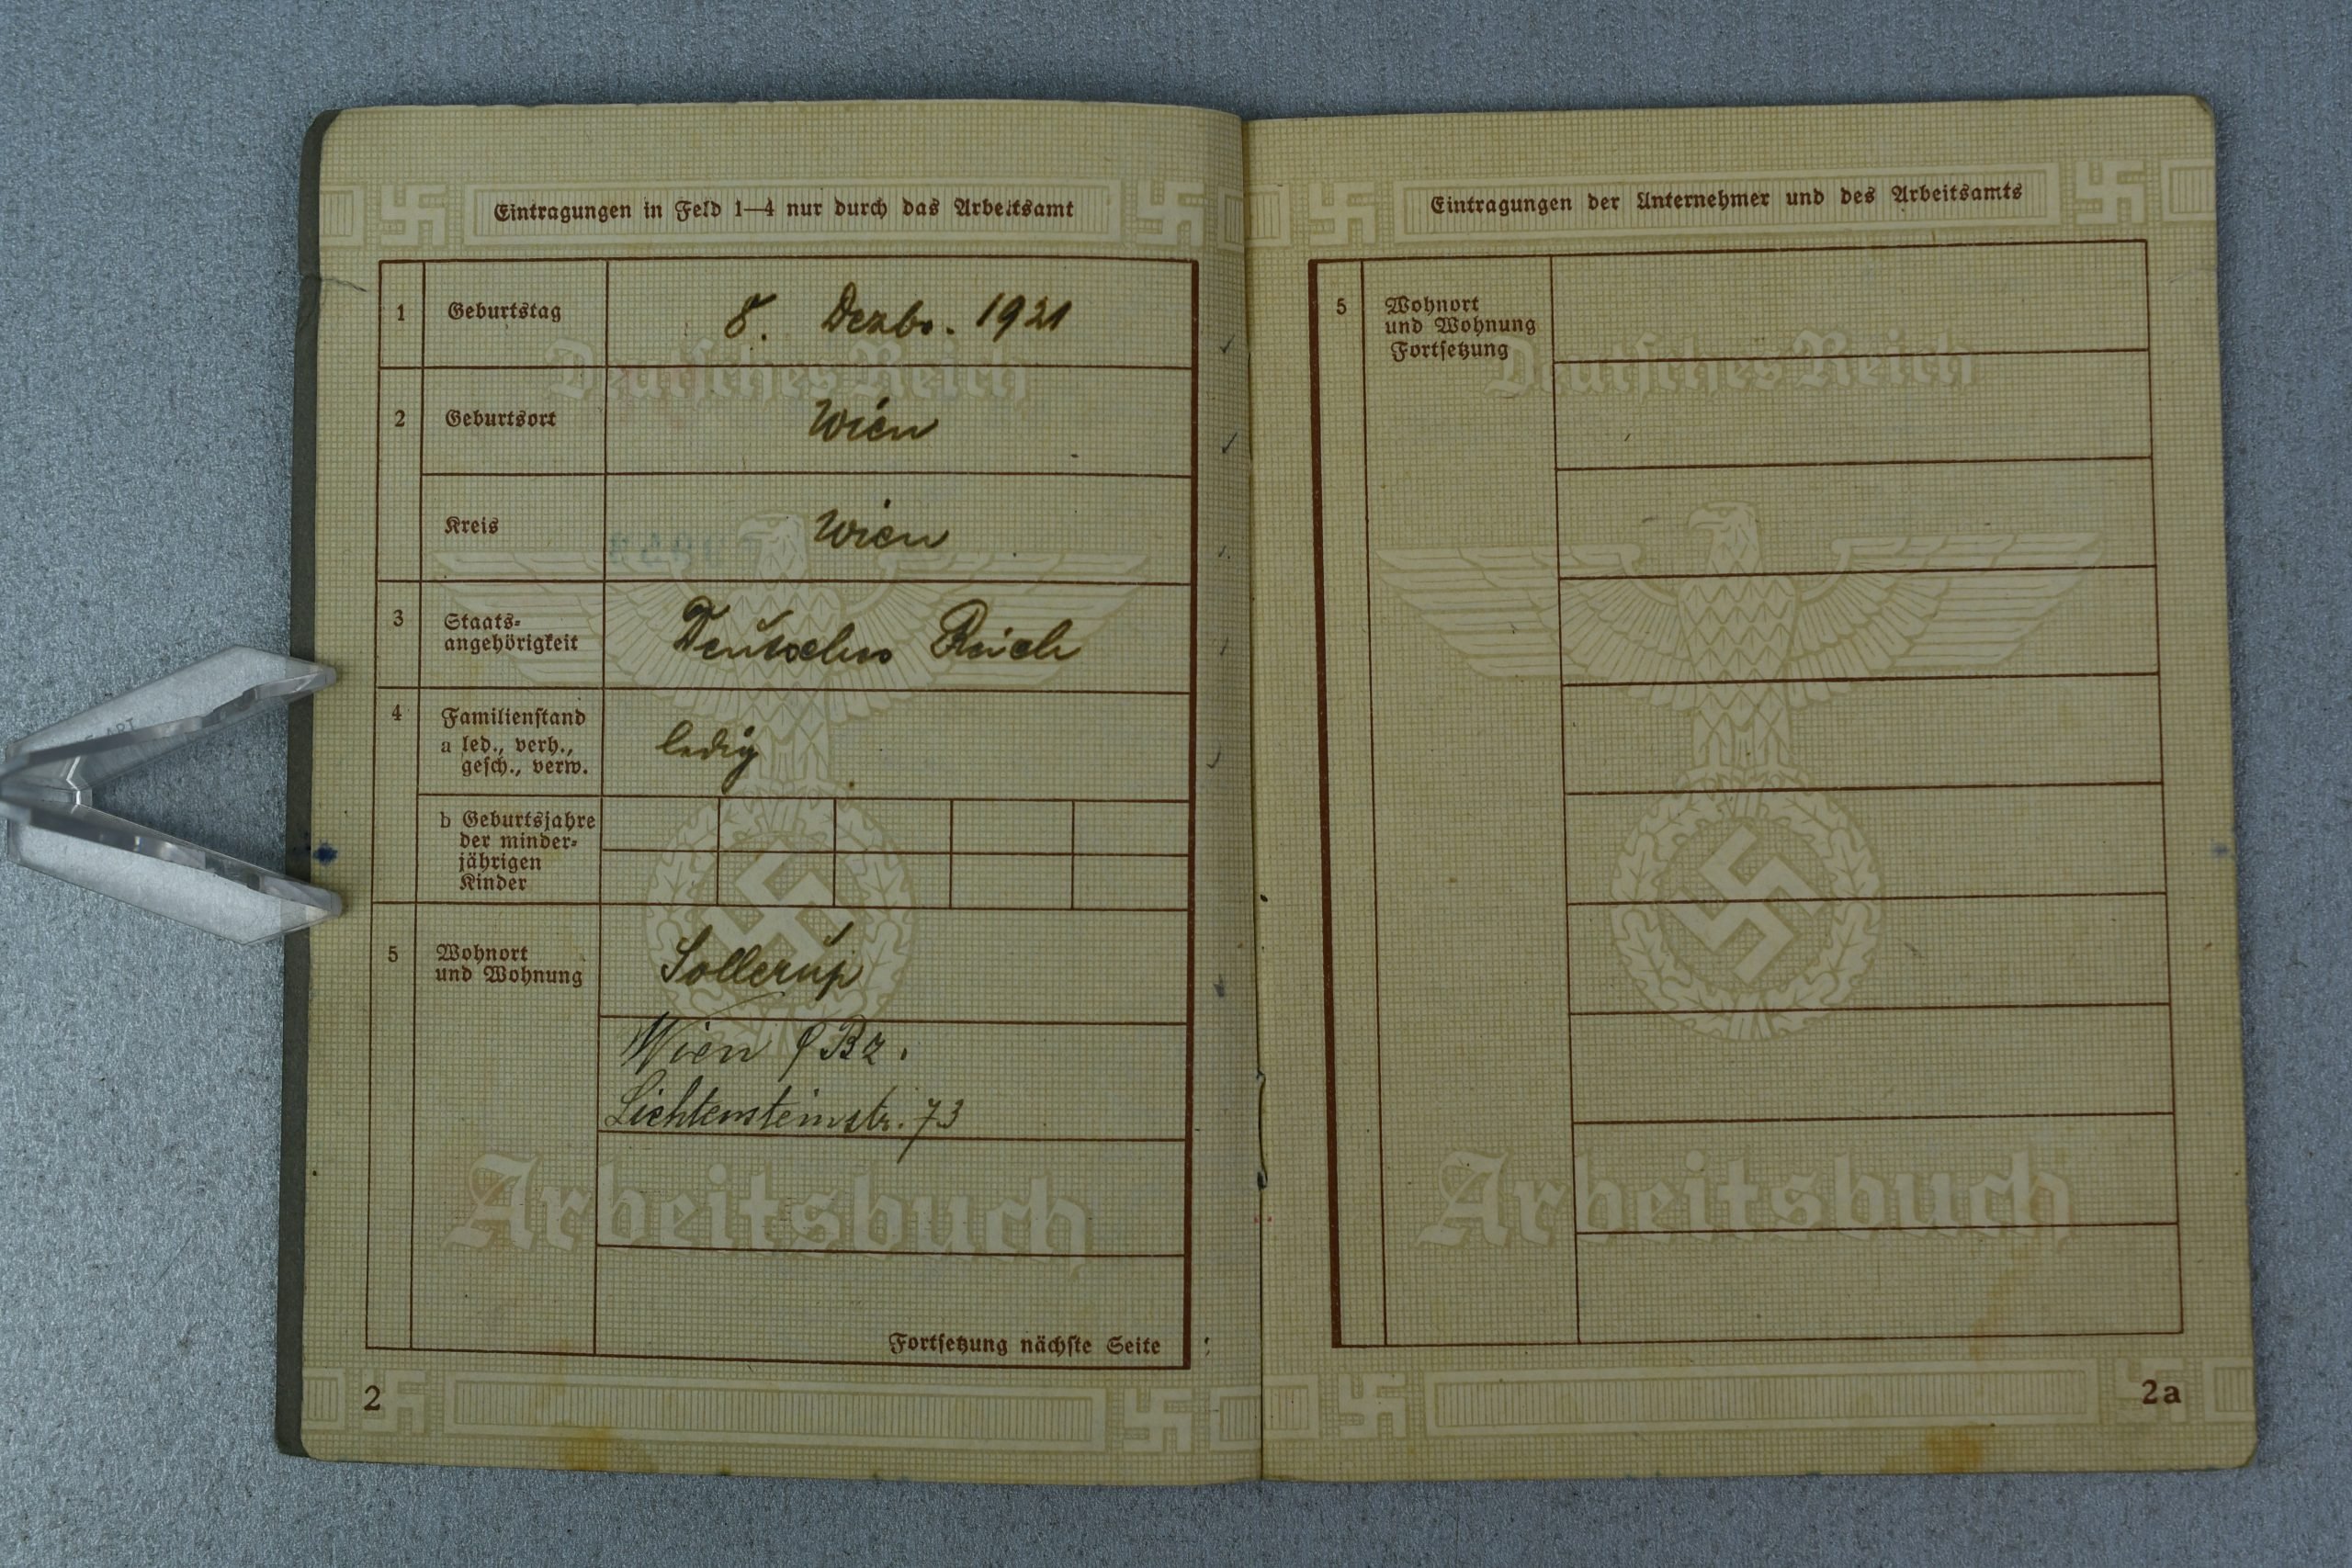 Eintragungen in Feld 1—4 nur durch das Arbeitsamt
Deutsches Reich
1 Geburtstag 8. Dezbr. 1921
2 Geburtsort Wien
Kreis Wien
3 Staats=
angehörigkeit Deutsches Reich
4 Familienstand
a led., verh.,
gesch., verw. ledig
b Geburtsjahre
der minder=
jährigen
Kinder
5 Wohnort
und Wohnung Sollerup
Wien 9 Bz.
Lichtensteinstr. 73
Arbeitsbuch
Fortsetzung nächste Seite
2
Eintragungen der Unternehmer und des Arbeitsamts
5 Wohnort
und Wohnung
Fortsetzung
Deutsches Reich
Arbeitsbuch
2a